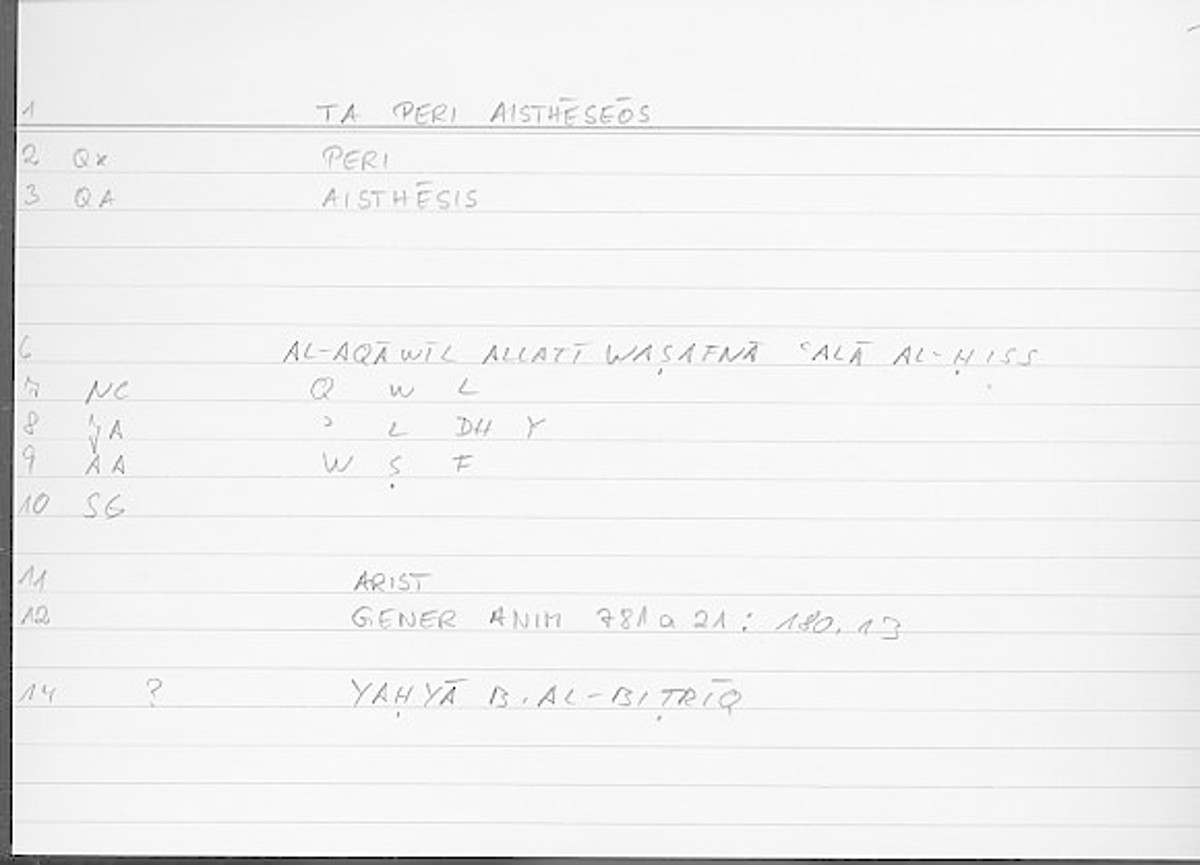 1 TA PERI AISTHĒSEŌS
2 Qx PERI
3 QA AISTHĒSIS
6 AL-AQĀWĪL ALLATĪ WAṢAFNĀ ʿALĀ AL-ḤISS
7 NC Q W L
8 A ʾ L DH Y
9 AA W Ṣ F
10 SG
11 ARIST
12 GENER ANIM 781 a 21 : 180.13
14 ? YAḤYĀ B. AL-BIṬRĪQ